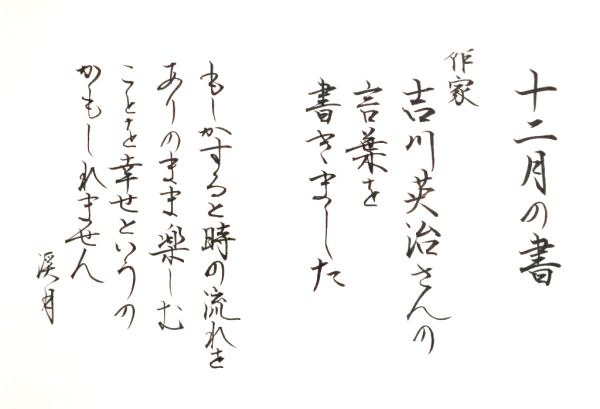 十二月の書
作家
吉川英治さんの
言葉を
書きました
もしかすると時の流れを
ありのまま楽しむ
ことを幸せというの
かもしれません
渓月